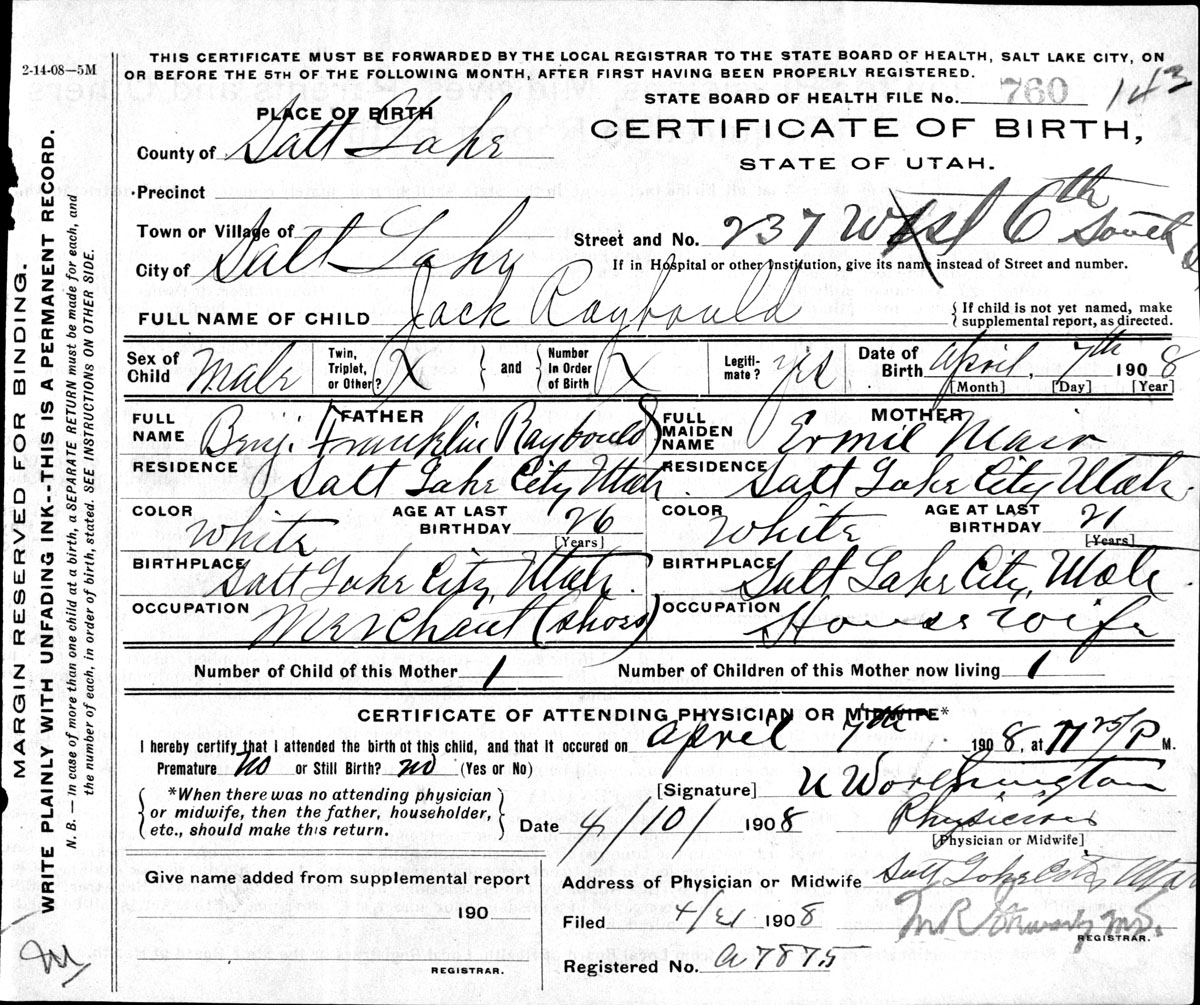 2-14-08—5M
MARGIN RESERVED FOR BINDING.
WRITE PLAINLY WITH UNFADING INK--THIS IS A PERMANENT RECORD.
N. B. — In case of more than one child at a birth, a SEPARATE RETURN must be made for each, and
the number of each, in order of birth, stated. SEE INSTRUCTIONS ON OTHER SIDE.
THIS CERTIFICATE MUST BE FORWARDED BY THE LOCAL REGISTRAR TO THE STATE BOARD OF HEALTH, SALT LAKE CITY, ON
OR BEFORE THE 5TH OF THE FOLLOWING MONTH, AFTER FIRST HAVING BEEN PROPERLY REGISTERED.
STATE BOARD OF HEALTH FILE No. 760 143
PLACE OF BIRTH
CERTIFICATE OF BIRTH,
STATE OF UTAH.
County of Salt Lake
Precinct
Town or Village of
Street and No. 237 West 6th South
City of Salt Lake
If in Hospital or other Institution, give its name instead of Street and number.
FULL NAME OF CHILD Jack Raybould
{If child is not yet named, make
supplemental report, as directed.
Sex of Child Male Twin, Triplet, or Other? X } and { Number In Order of Birth X Legiti-mate? yes Date of Birth April, 7th 1908
[Month] [Day] [Year]
FATHER MOTHER
FULL NAME Benj. Franklin Raybould FULL MAIDEN NAME Ermie Mair
RESIDENCE Salt Lake City Utah. RESIDENCE Salt Lake City Utah.
COLOR White AGE AT LAST BIRTHDAY 26 [Years] COLOR White AGE AT LAST BIRTHDAY 21 [Years]
BIRTHPLACE Salt Lake City, Utah. BIRTHPLACE Salt Lake City, Utah.
OCCUPATION Merchant (shoes) OCCUPATION House wife
Number of Child of this Mother 1 Number of Children of this Mother now living 1
CERTIFICATE OF ATTENDING PHYSICIAN OR MIDWIFE*
I hereby certify that I attended the birth of this child, and that it occured on April 7th 1908, at 11 25/P M.
Premature no or Still Birth? no (Yes or No)
[Signature] U Worthington
{*When there was no attending physician
or midwife, then the father, householder,
etc., should make this return.}
Date 4/10/ 1908 Physician
[Physician or Midwife]
Give name added from supplemental report
190
REGISTRAR.
Address of Physician or Midwife Salt Lake City, Utah
Filed 4/21 1908
REGISTRAR.
Registered No. a7875